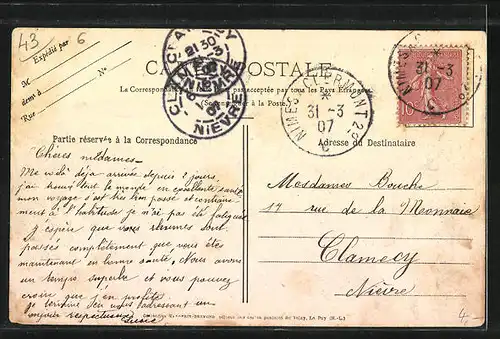 43
6
Expédié par
M
demt à
Rue
No
CARTE POSTALE
La Correspondance
pas acceptée par tous les Pays Étrangers
à la Poste
CLAMECY
2130
31-3
07
NIEVRE
NIMES A CLERMONT 2o
31-3
07
C
31-3
07
C
10
Partie réservée à la Correspondance
Adresse du Destinataire
Chères mesdames
Me voilà déjà arrivée depuis 2 jours,
j'ai trouvé tout le monde en excellente santé
mon voyage s'est très bon passé et contraire-
ment à l'habitude je n'ai pas été fatiguée
J'espère que vos rhumes sont
passés complètement que vous êtes
maintenant en bonne santé, Nous avons
un temps superbe et vous pouvez
croire que j'en profite
Je termine en vous adressant un
bonjour respectueux
Mesdames Bouche
17 rue de la Monnaie
Clamecy
Nièvre
Le Puy (H.-L.)
4.-